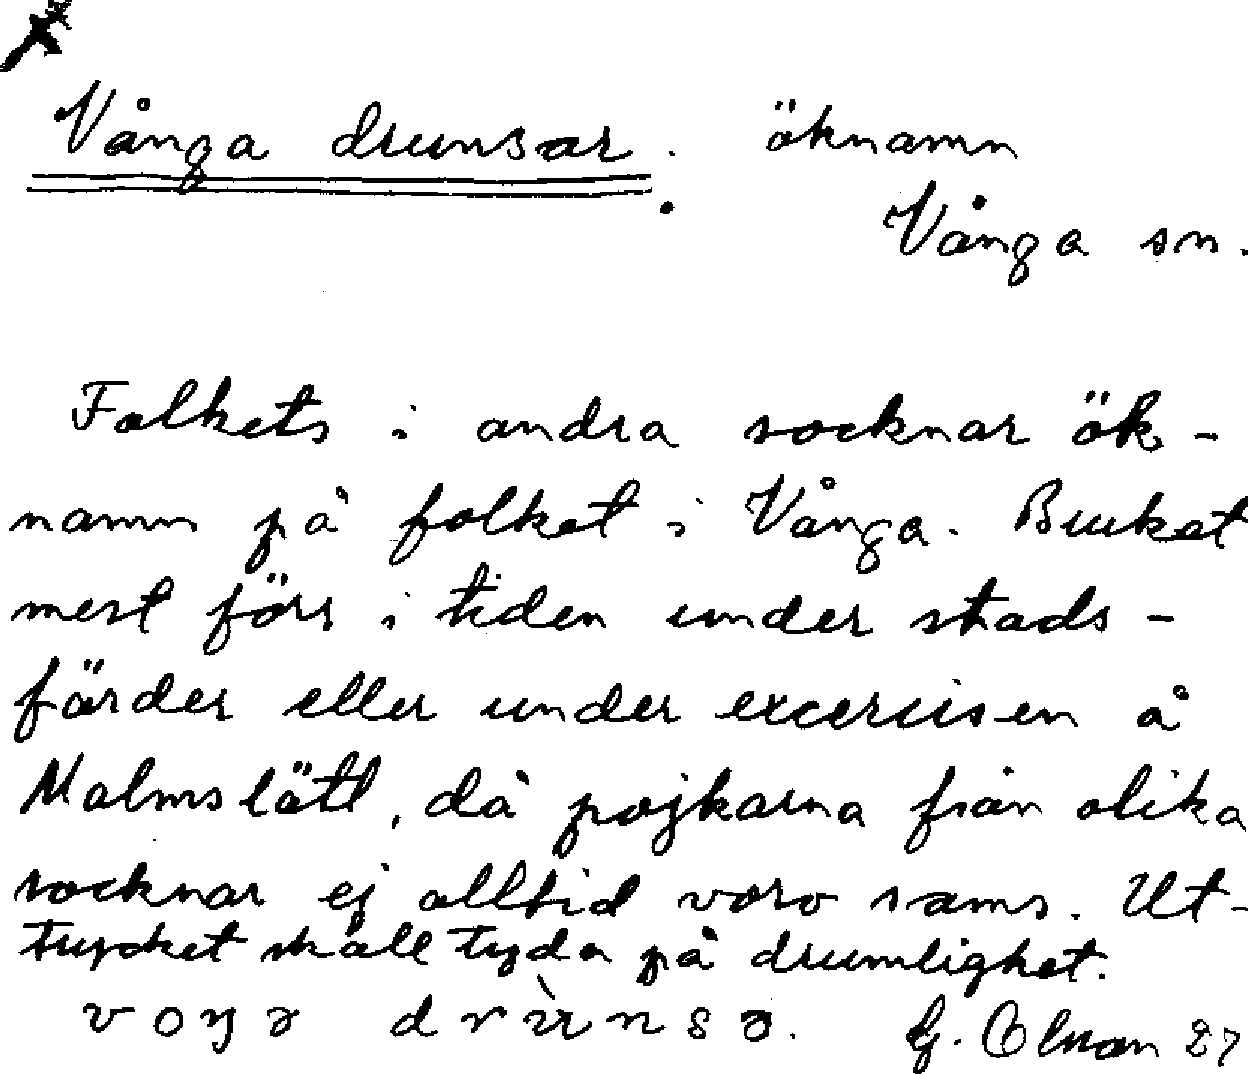 Vånga drunsar. öknamn
Vånga sn.
Folkets i andra socknar ök-
namn på folket i Vånga. Brukat
mest förr i tiden under stads-
färder eller under excercisen å
Malmslätt, då pojkarna från olika
socknar ej alltid voro sams. Ut-
trycket skall tyda på drumlighet.
G. 27